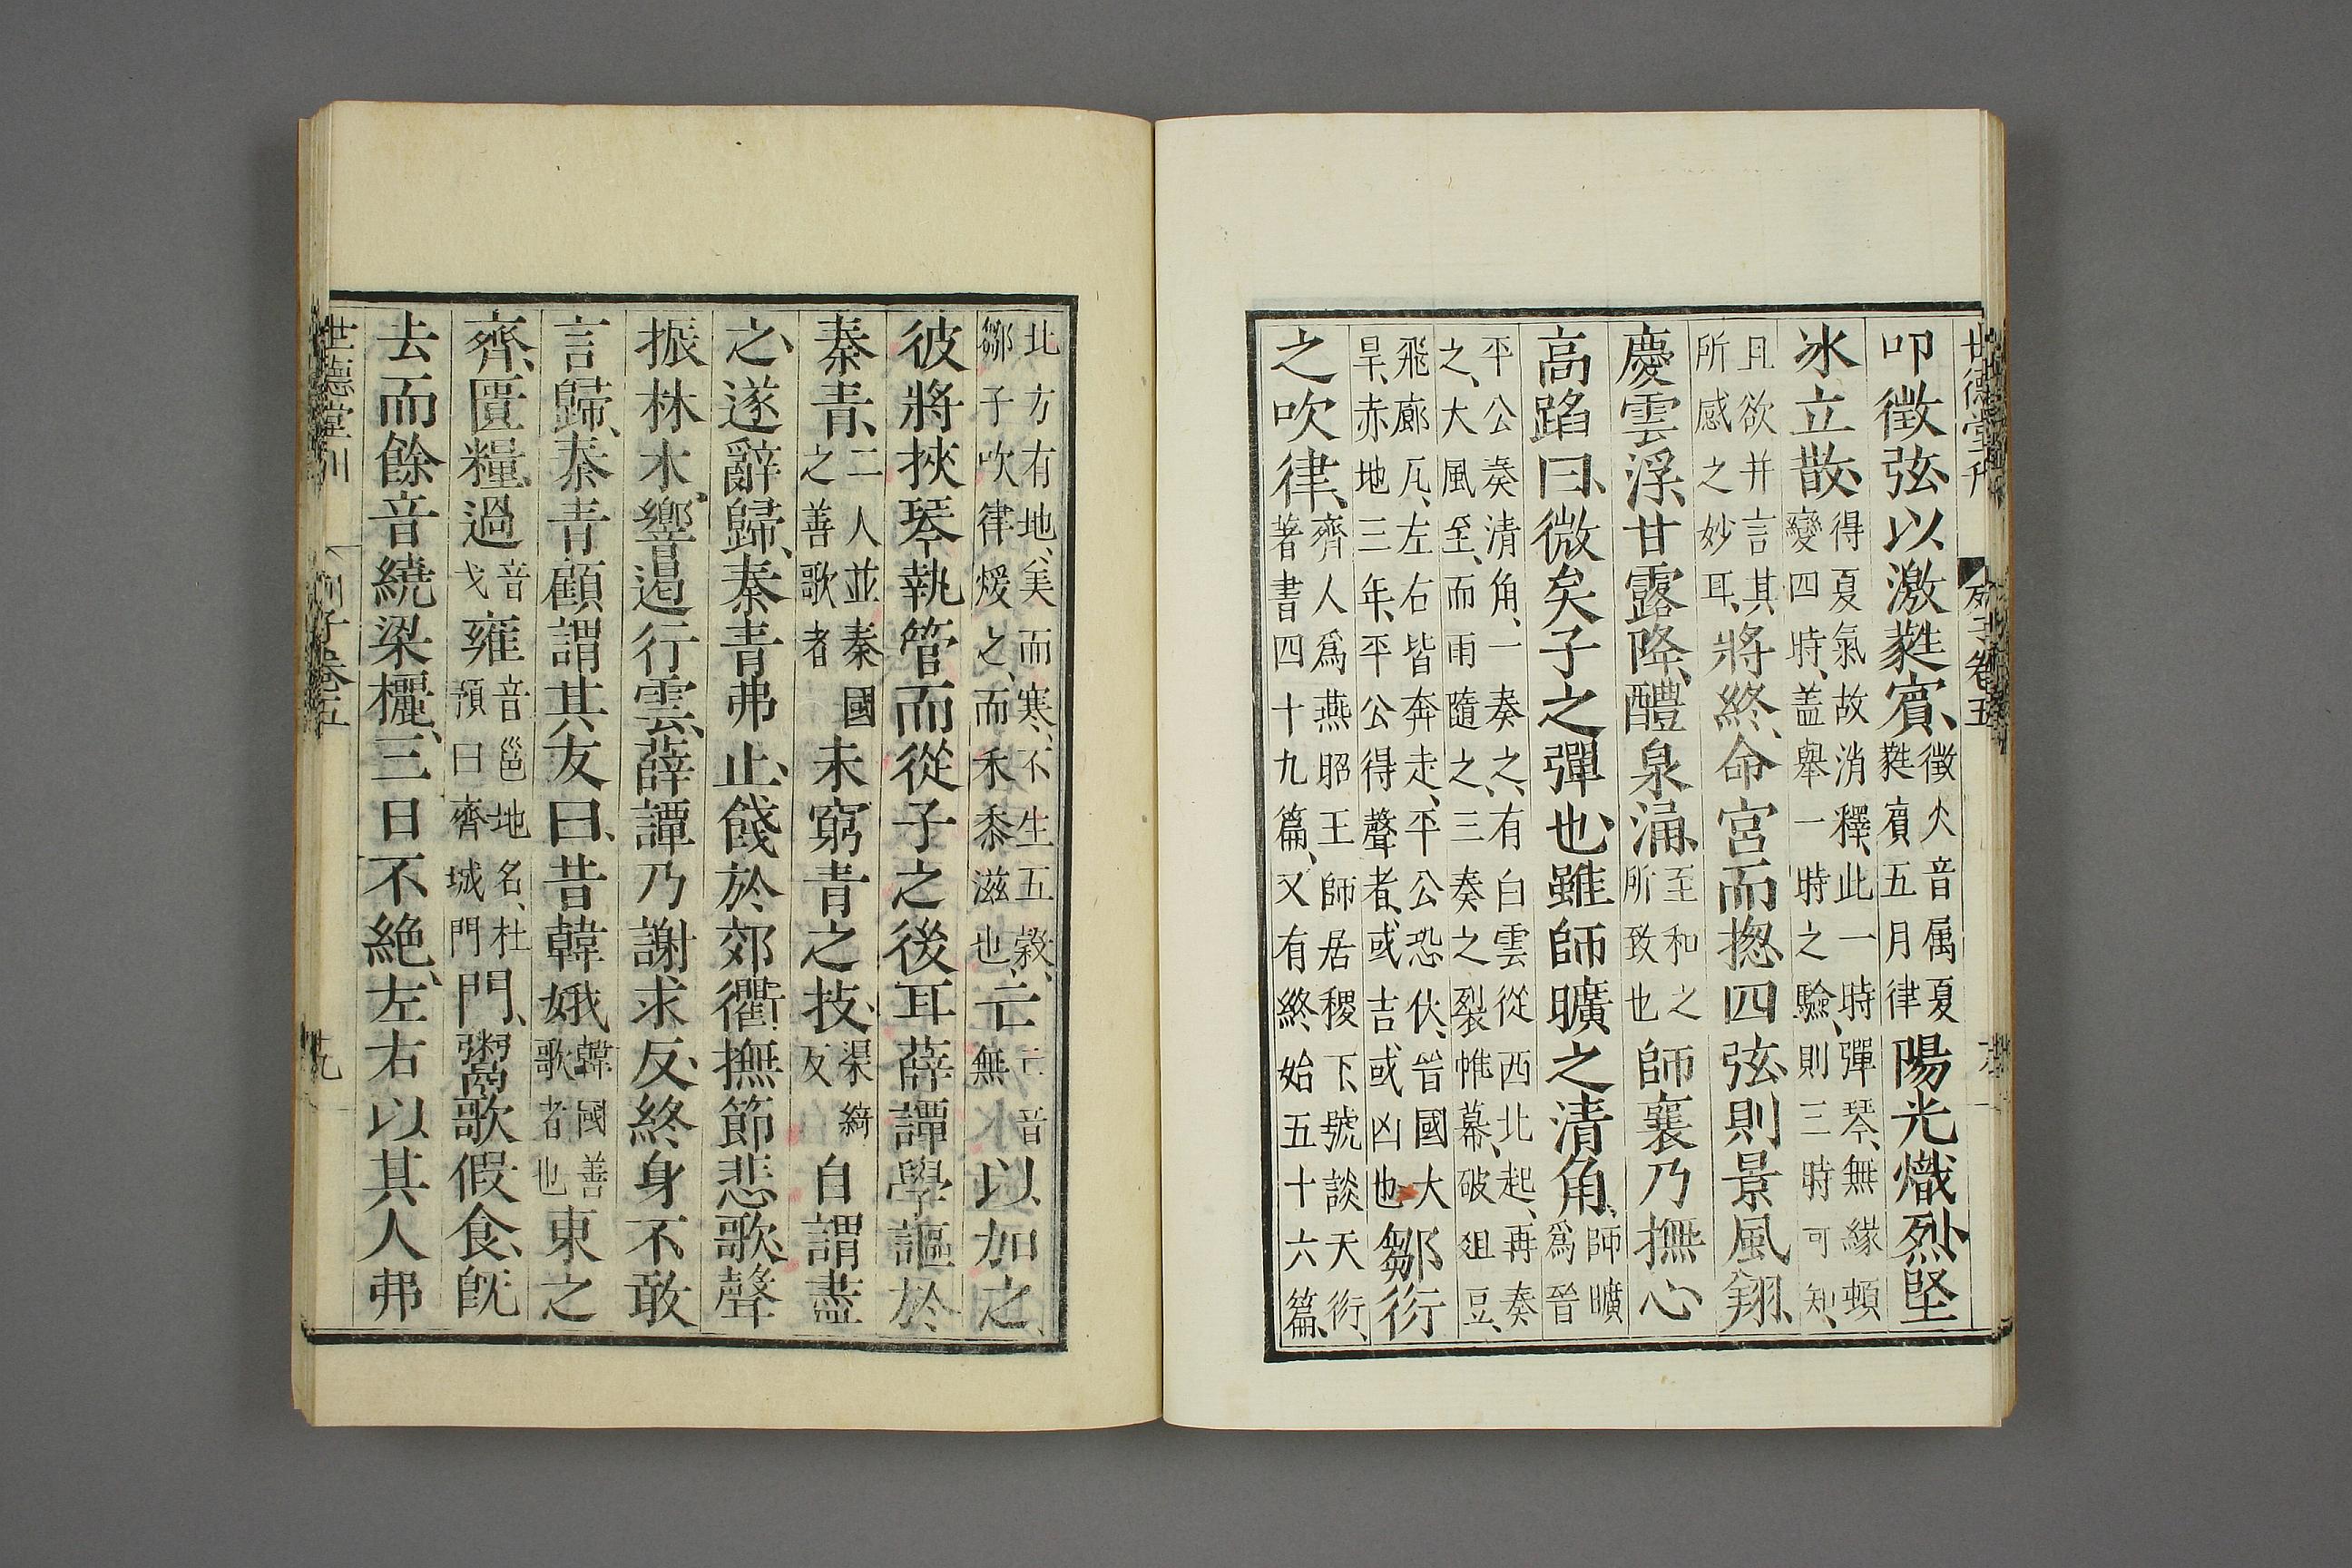 世德堂刊 列子卷五
叩徵弦以激蕤賓、徵火音属夏蕤賓五月律陽光熾烈堅
冰立散、得夏氣故消釋、此一時彈琴、無縁頓變四時、盖舉一時之驗、則三時可知、
且欲并言其所感之妙耳、將終、命宮而揔四弦則景風翔、
慶雲浮、甘露降、醴泉涌、至和之所致也師襄乃撫心
高蹈曰、微矣子之彈也、雖師曠之清角、師曠爲晉
平公奏清角、一奏之、有白雲從西北起、再奏之、大風至、而雨隨之、三奏之裂帷幕、破俎豆、
飛廊瓦、左右皆奔走、平公恐伏、晉國大旱、赤地三年、平公得聲者、或吉或凶也鄒衍
之吹律、齊人爲燕昭王師居稷下、號談天衍、著書四十九篇、又有終始五十六篇、
北方有地、美而寒、不生五穀、鄒子吹律煖之、而禾黍滋也、亡音無以加之、
彼將挾琴執管而從子之後耳薛譚學謳於
秦青、二人並秦國之善歌者未窮青之技、渠綺反自謂盡
之、遂辭歸、秦青弗止、餞於郊衢、撫節悲歌、聲
振林木、響遏行雲、薛譚乃謝求反、終身不敢
言歸、秦青顧謂其友曰、昔韓娥韓國善歌者也東之
齊、匱糧、過音戈雍音邕地名、杜預曰齊城門門、鬻歌假食、旣
去而餘音繞梁欐、三日不絶、左右以其人弗
世德堂刊 列子卷五 十九